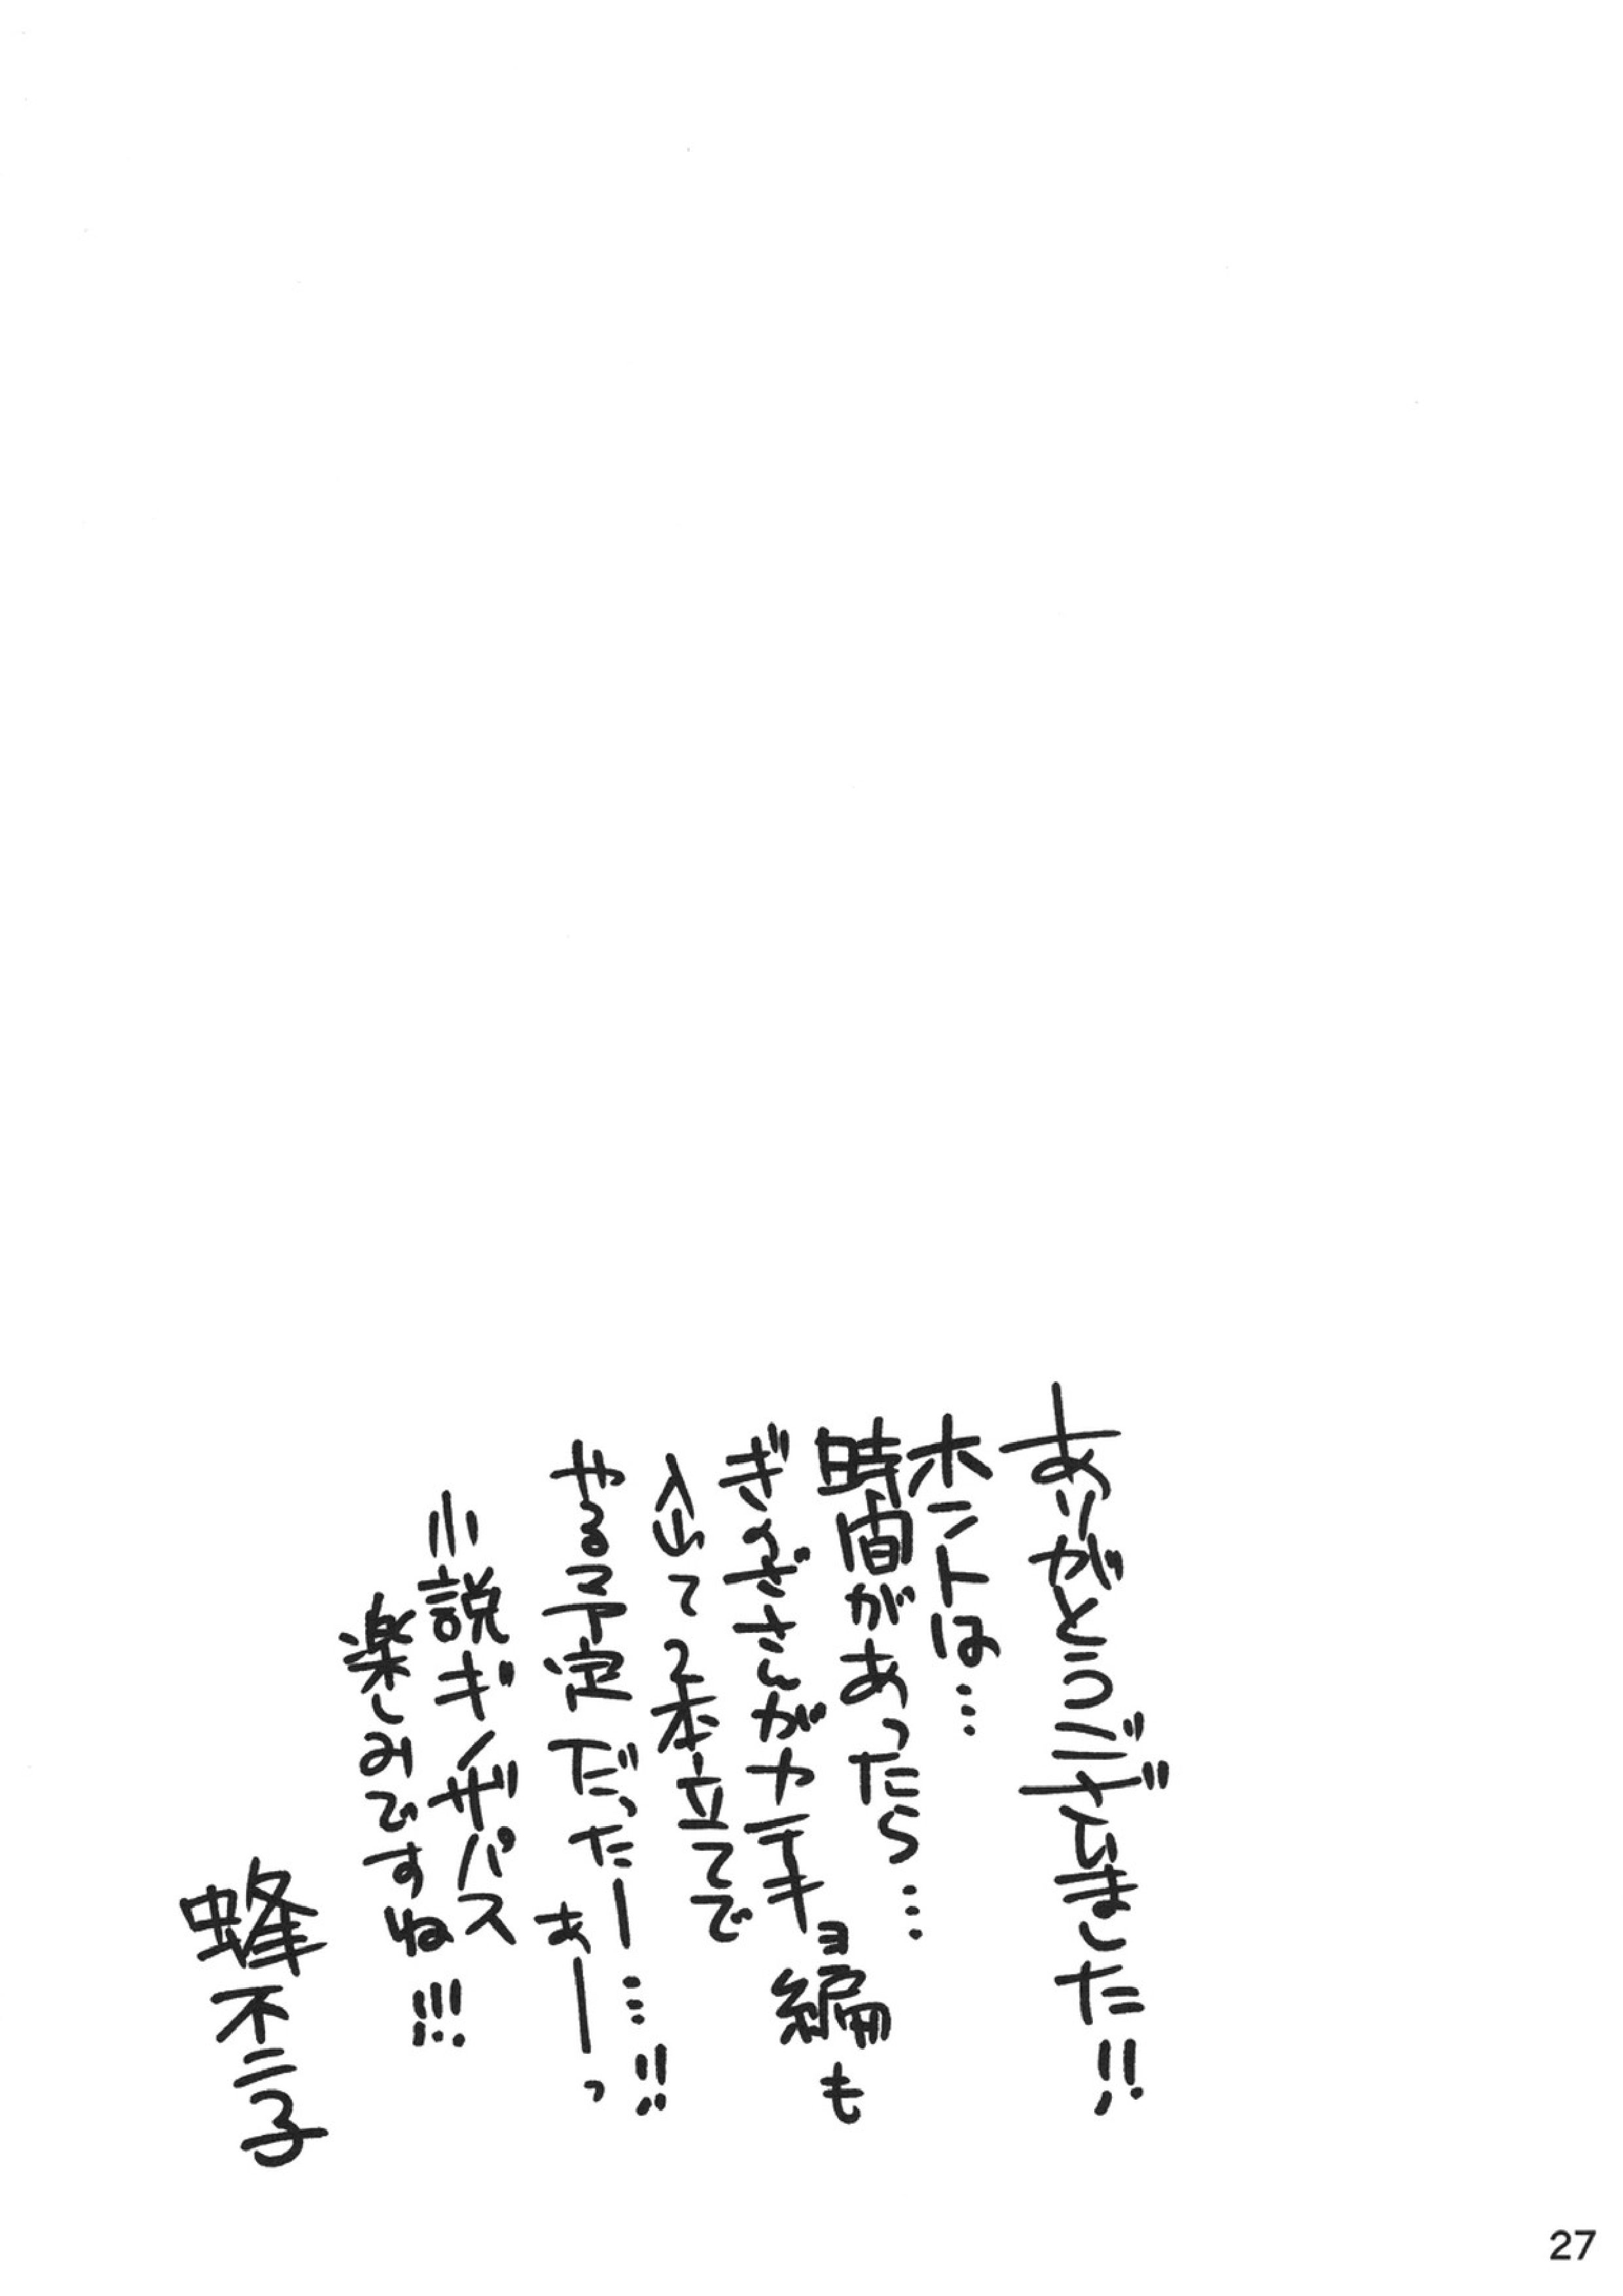 ありがとうございました!!
ホントは…
時間があったら…
ぎのざさんがカテキョ編も
入れて2本立てで
やる予定だったー…!!
あーーっ
小説ギノザパス
楽しみですね!!!
蜂不二子
27